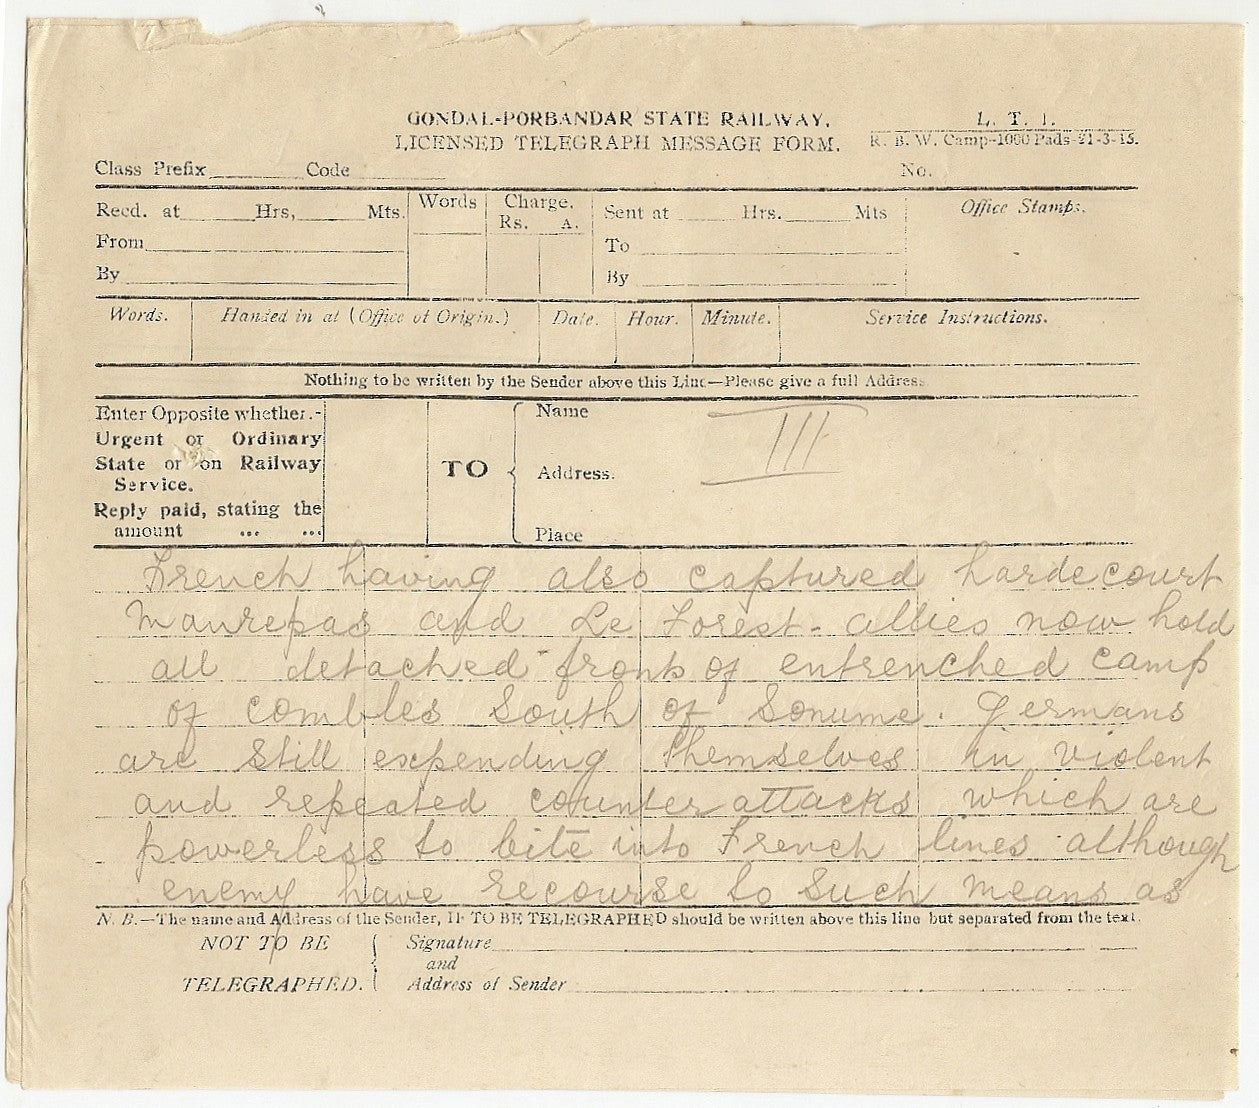 GONDAL-PORBANDAR STATE RAILWAY.
LICENSED TELEGRAPH MESSAGE FORM.
L. T. 1.
R. B. W. Camp-1000 Pads-21-3-15.
Class Prefix Code No.
Recd. at Hrs, Mts. Words Charge. Sent at Hrs. Mts Office Stamps.
Rs. A.
From To
By By
Words. Handed in at (Office of Origin.) Date. Hour. Minute. Service Instructions.
Nothing to be written by the Sender above this Line—Please give a full Address.
Enter Opposite whether.-
Urgent or Ordinary
State or on Railway
Service.
Reply paid, stating the
amount ... ...
TO
Name
III
Address.
Place
French having also captured hardecourt
Maurepas and Le Forest - allies now hold
all detached fronts of entrenched camp
of combles South of Somme. Germans
are still expending themselves in violent
and repeated counter attacks which are
powerless to bite into French lines although
enemy have recourse to such means as
N. B.—The name and Address of the Sender, IF TO BE TELEGRAPHED should be written above this line but separated from the text.
NOT TO BE
TELEGRAPHED.
Signature
and
Address of Sender